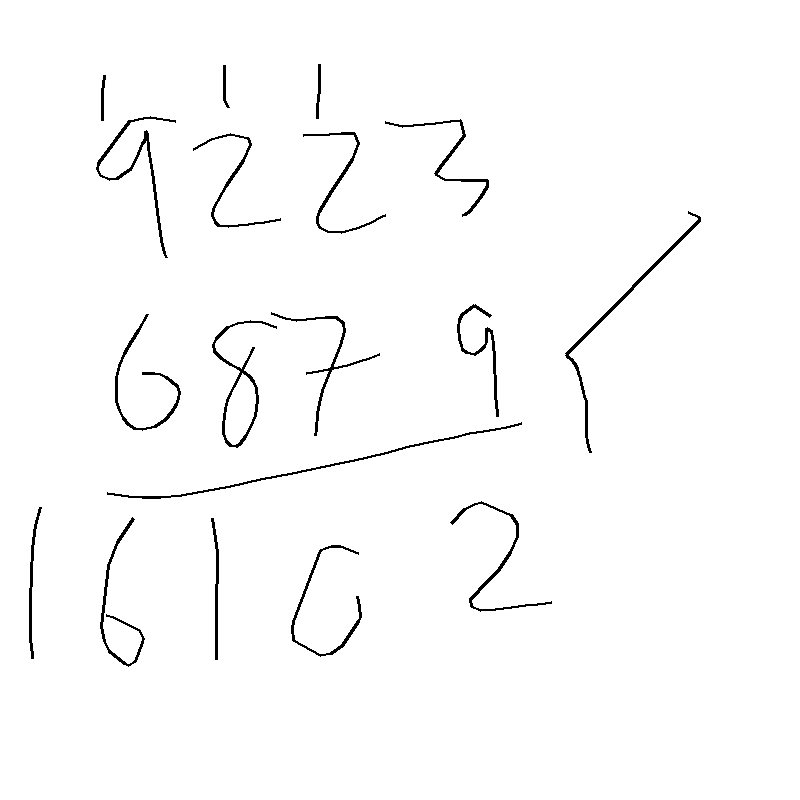 1 1 1
9223
6879
16102